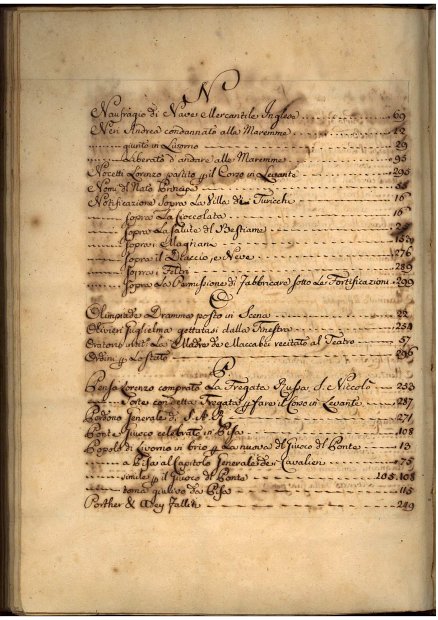 N
Naufragio di Nave Mercantile Inglese 69
Neri Andrea condannato alle Maremme 12
giunto in Livorno 29
Liberato d'andare alle Maremme 95
Nocetti Lorenzo patito p il Corso in Levante 295
Nomi di Nato Principe
Notificazione Sopra La Villa di Turicchi 16
sopra La Cioccolata 16
sopra La Salute del Bestiame
sopra i Magnani
sopra il Diaccio, e Neve 276
sopra i Filtri 289
sopra La Permissione di Fabbricare sotto Le Fortificazioni 299
O
Olimpiade Dramma posto in Scena 22
Olivieri Guglielmo gettatasi dalla Finestra 254
Oratorio La Madre de Maccabei recitato al Teatro 57
Ordini p Lo stato 296
P
Pensa Lorenzo comprato La Fregata Russa S. Niccolò 253
Sorte con detta Fregata p fare il Corso in Levante 287
Perdono Generale di S.A.R. 271
Ponte Giuoco celebrato in Pisa 108
Popolo di Livorno in brio p La nuova del Giuoco del Ponte 13
a Pisa al Capitolo Generale de Cavalieri 75
simile p il Giuoco del Ponte 105.108
torna giulivo da Pisa 115
Porther & Aley Falliti 249